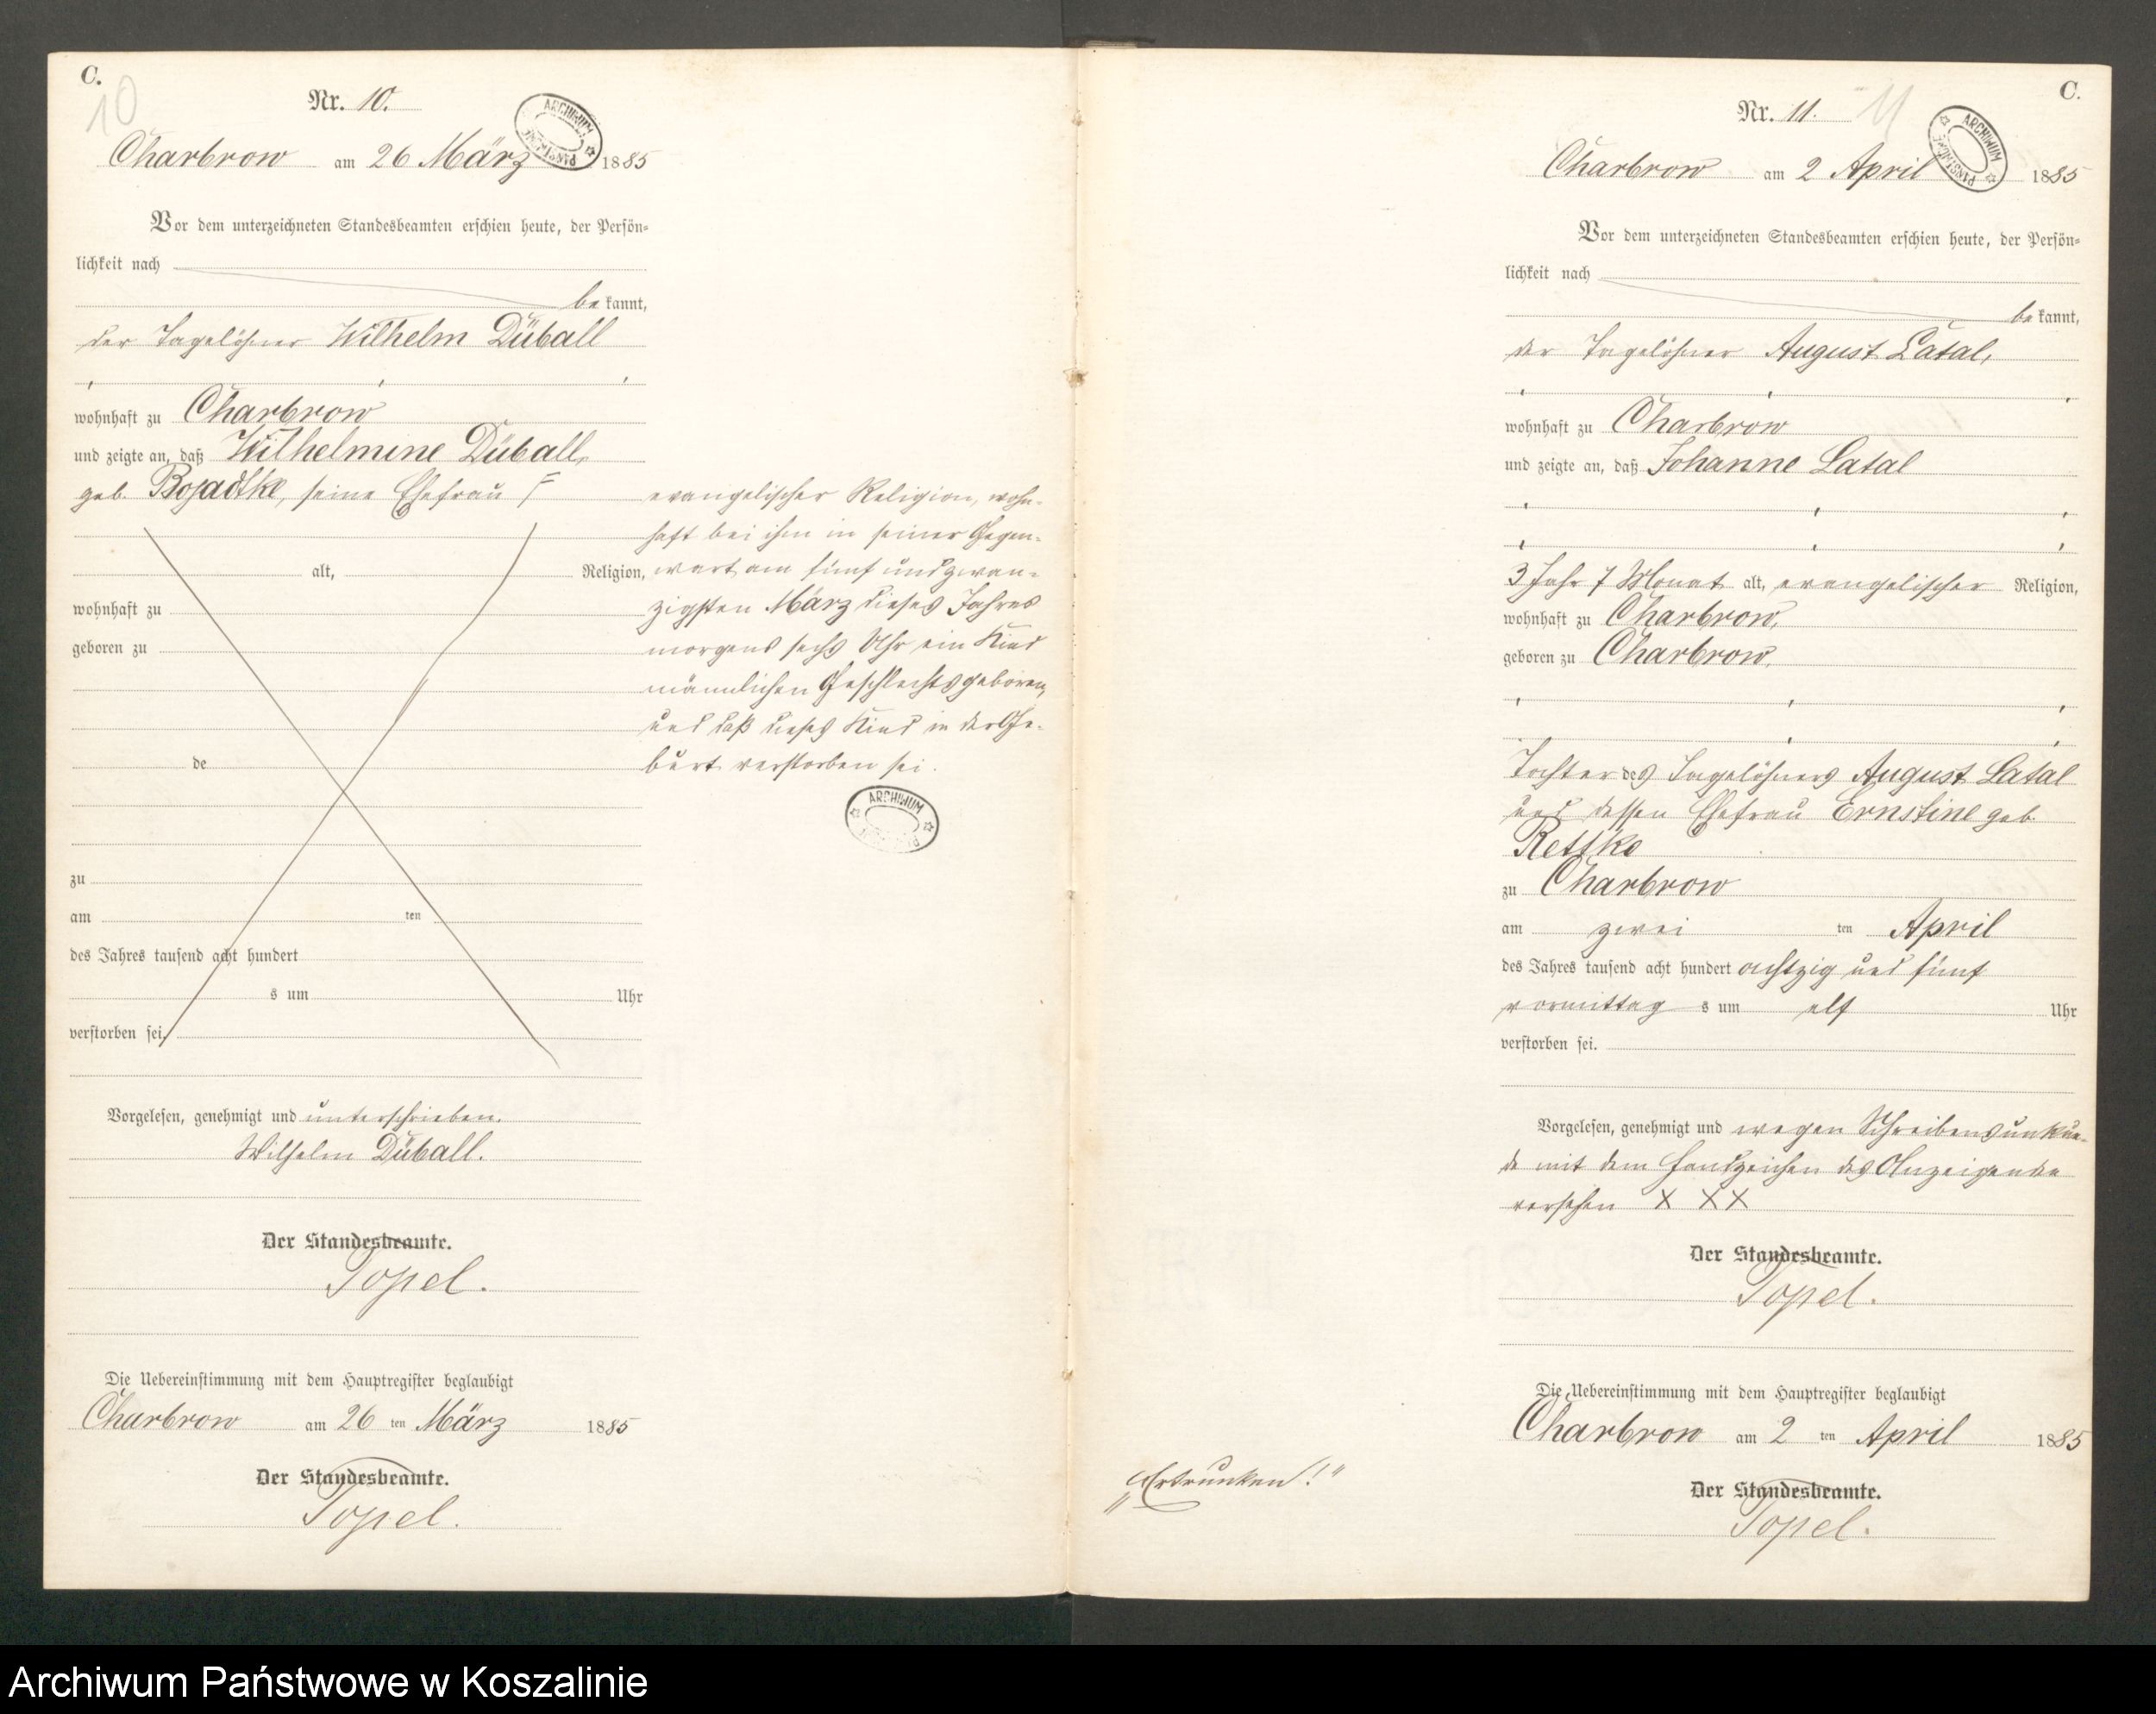 C.
10
Nr. 10.
Charbrow am 26 März 1885
Vor dem unterzeichneten Standesbeamten erschien heute, der Persön-
lichkeit nach
be kannt,
der Tagelöhner Wilhelm Düball
wohnhaft zu Charbrow
und zeigte an, daß Wilhelmine Düball,
geb. Bojadtke, seine Ehefrau
evangelischer Religion, wohn-
haft bei ihm in seiner Gegen-
wart am fünf und zwan-
zigsten März dieses Jahres
morgens sechs Uhr ein Kind
männlichen Geschlechts geboren,
und daß dieses Kind in der Ge-
burt verstorben sei.
alt, Religion,
wohnhaft zu
geboren zu
de
zu
am ten
des Jahres tausend acht hundert
s um Uhr
verstorben sei
Vorgelesen, genehmigt und unterschrieben.
Wilhelm Düball.
Der Standesbeamte.
Topel.
Die Uebereinstimmung mit dem Hauptregister beglaubigt
Charbrow am 26 ten März 1885
Der Standesbeamte.
Topel.
ARCHIWUM
ARCHIWUM PAŃSTWOWE
C.
Nr. 11.
11
ARCHIWUM PAŃSTWOWE
Charbrow am 2 April 1885
Vor dem unterzeichneten Standesbeamten erschien heute, der Persön-
lichkeit nach
be kannt,
der Tagelöhner August Latal,
wohnhaft zu Charbrow
und zeigte an, daß Johanne Latal
3 Jahr 7 Monat alt, evangelischer Religion,
wohnhaft zu Charbrow,
geboren zu Charbrow,
Tochter des Tagelöhners August Latal
und dessen Ehefrau Ernstine geb.
Rettke
zu Charbrow
am zwei ten April
des Jahres tausend acht hundert achtzig und fünf
vormittag s um elf Uhr
verstorben sei.
Vorgelesen, genehmigt und wegen Schreibensunkun-
de mit dem Handzeichen des Anzeigenden
versehen X X X
Der Standesbeamte.
Topel.
Die Uebereinstimmung mit dem Hauptregister beglaubigt
Charbrow am 2 ten April 1885
Der Standesbeamte.
Topel.
„Ertrunken!“
Archiwum Państwowe w Koszalinie